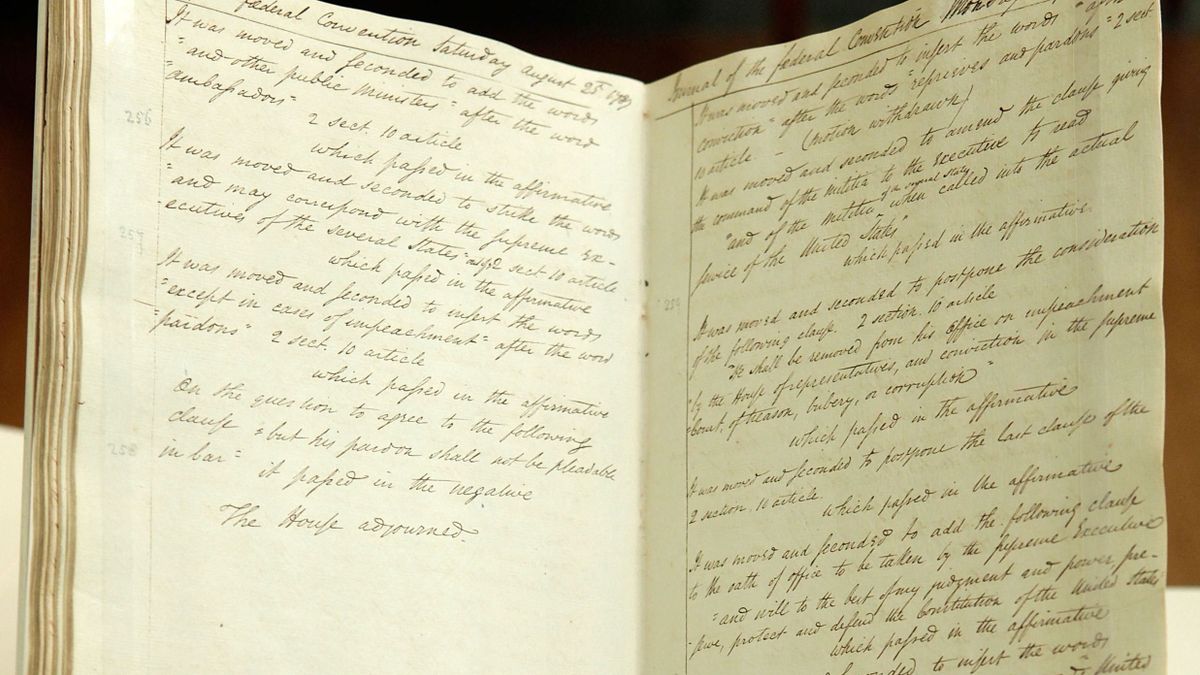 Federal Convention Saturday august 25 1787
It was moved and seconded to add the words
"and other public ministers" after the word
"ambassadors"
2 sect. 10 article
which passed in the affirmative
256
It was moved and seconded to strike the words
"and may correspond with the supreme Ex-
-ecutives of the several States" 2 sect 10 article
257
which passed in the affirmative
It was moved and seconded to insert the words
"except in cases of impeachment" after the word
"pardons" 2 sect. 10 article
which passed in the affirmative
On the question to agree to the following
clause "but his pardon shall not be pleadable
258
in bar"
it passed in the negative
The House adjourned.
Journal of the federal Convention Monday
It was moved and seconded to insert the words "after
conviction" after the words "reprieves and pardons" 2 sect
10 article. - (motion withdrawn)
It was moved and seconded to amend the clause giving
the command of the militia to the Executive to read
"and of the militia of the several States when called into the actual
service of the United States"
which passed in the affirmative
259
It was moved and seconded to postpone the consideration
of the following clause. 2 section. 10 article
"He shall be removed from his Office on impeachment
"by the House of representatives, and conviction in the supreme
"Court, of treason, bribery, or corruption"
which passed in the affirmative
It was moved and seconded to postpone the last clause of the
2 section. 10 article.
which passed in the affirmative
It was moved and seconded to add the following clause
to the oath of office to be taken by the supreme Executive
"and will to the best of my judgment and power, pre-
-serve, protect and defend the Constitution of the United States
which passed in the affirmative
seconded to insert the words
United